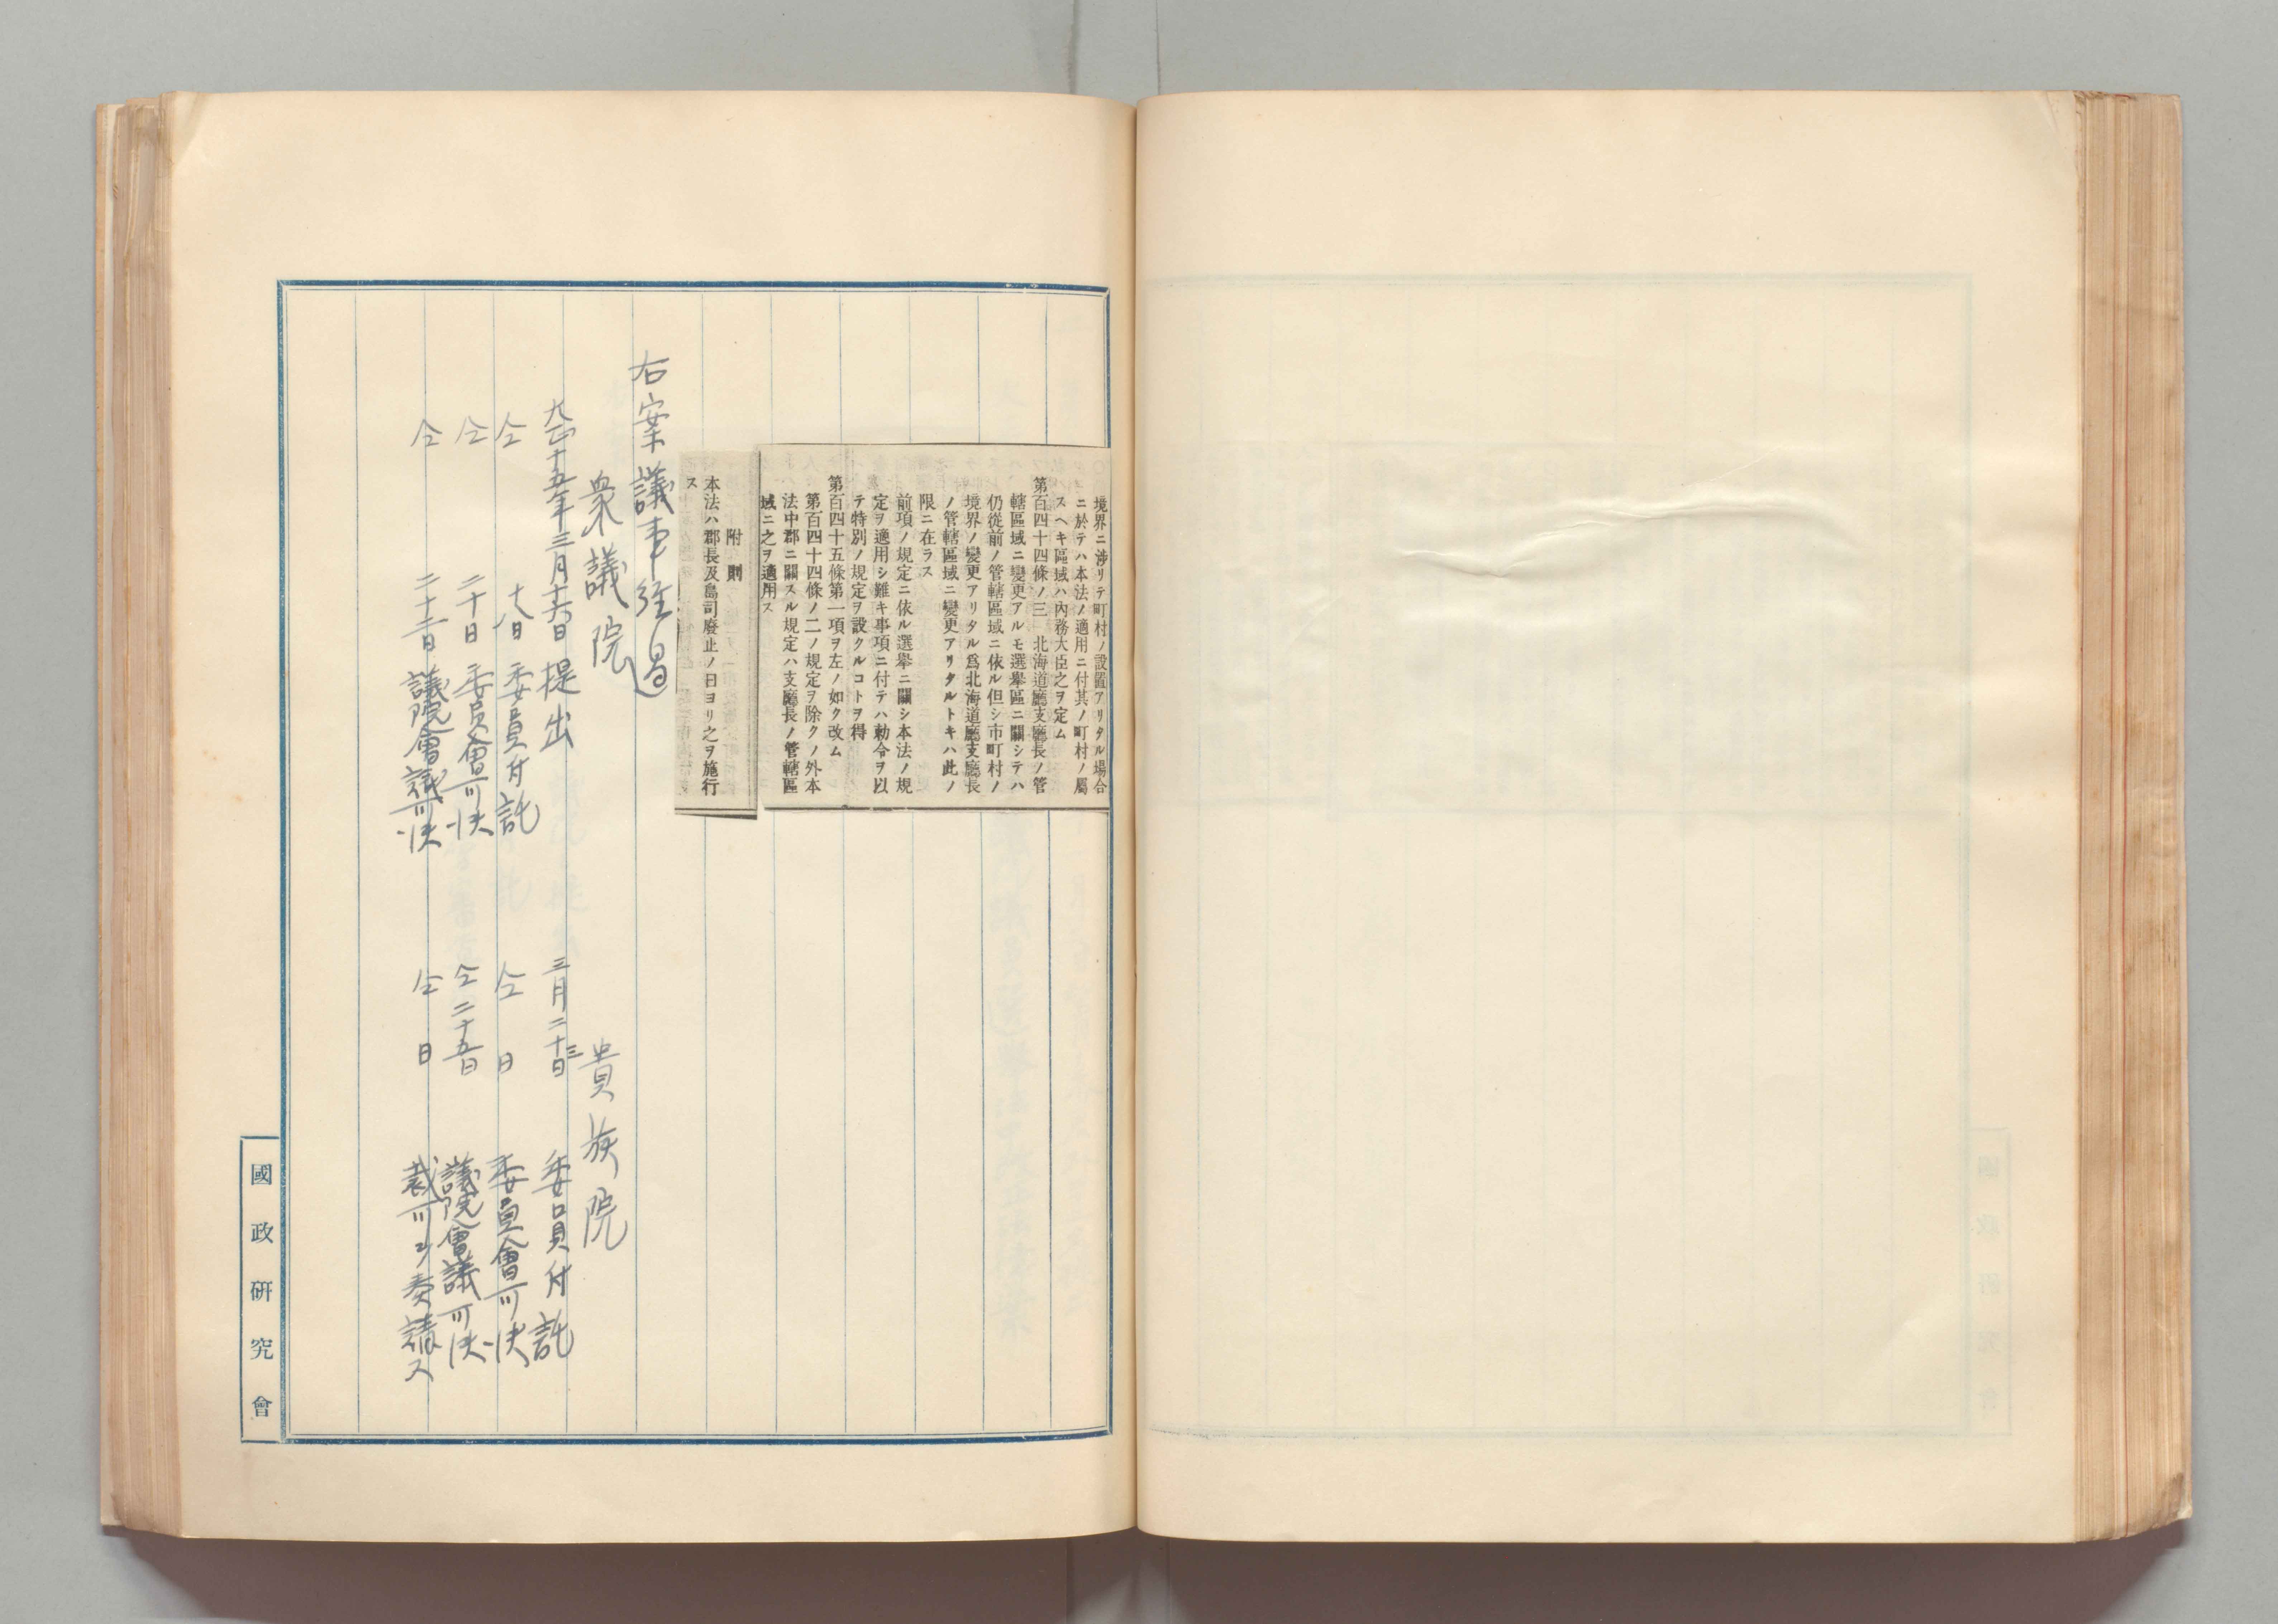 境界ニ渉リテ町村ノ設置アリタル場合
ニ於テハ本法ノ適用ニ付其ノ町村ノ屬
スヘキ區域ハ內務大臣之ヲ定ム
第百四十四條ノ三　北海道廳支廳長ノ管
轄區域ニ變更アルモ選擧區ニ關シテハ
仍從前ノ管轄區域ニ依ル但シ市町村ノ
境界ノ變更アリタル爲北海道廳支廳長
ノ管轄區域ニ變更アリタルトキハ此ノ
限ニ在ラス
前項ノ規定ニ依ル選擧ニ關シ本法ノ規
定ヲ適用シ難キ事項ニ付テハ勅令ヲ以
テ特別ノ規定ヲ設クルコトヲ得
第百四十五條第一項ヲ左ノ如ク改ム
第百四十四條ノ二ノ規定ヲ除クノ外本
法中郡ニ關スル規定ハ支廳長ノ管轄區
域ニ之ヲ適用ス
附則
本法ハ郡長及島司廢止ノ日ヨリ之ヲ施行
ス
右案議事経過
衆議院
大正十五年三月十六日 提出
仝 十八日 委員付託
仝 二十日 委員會可決
仝 二十二日 議院會議可決
貴族院
三月二十三日 委員付託
仝 日 委員會可決
仝 二十五日 議院會議可決
仝 日 裁可ヲ奏請ス
國政研究會